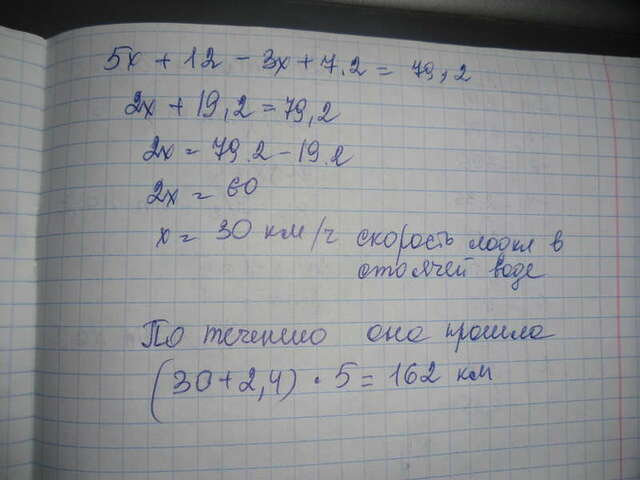 5x + 12 - 3x + 7.2 = 79,2
2x + 19,2 = 79,2
2x = 79.2 - 19.2
2x = 60
x = 30 км/ч скорость лодкл в
стоячей воде
По течению она прошла
(30+2,4) • 5 = 162 км